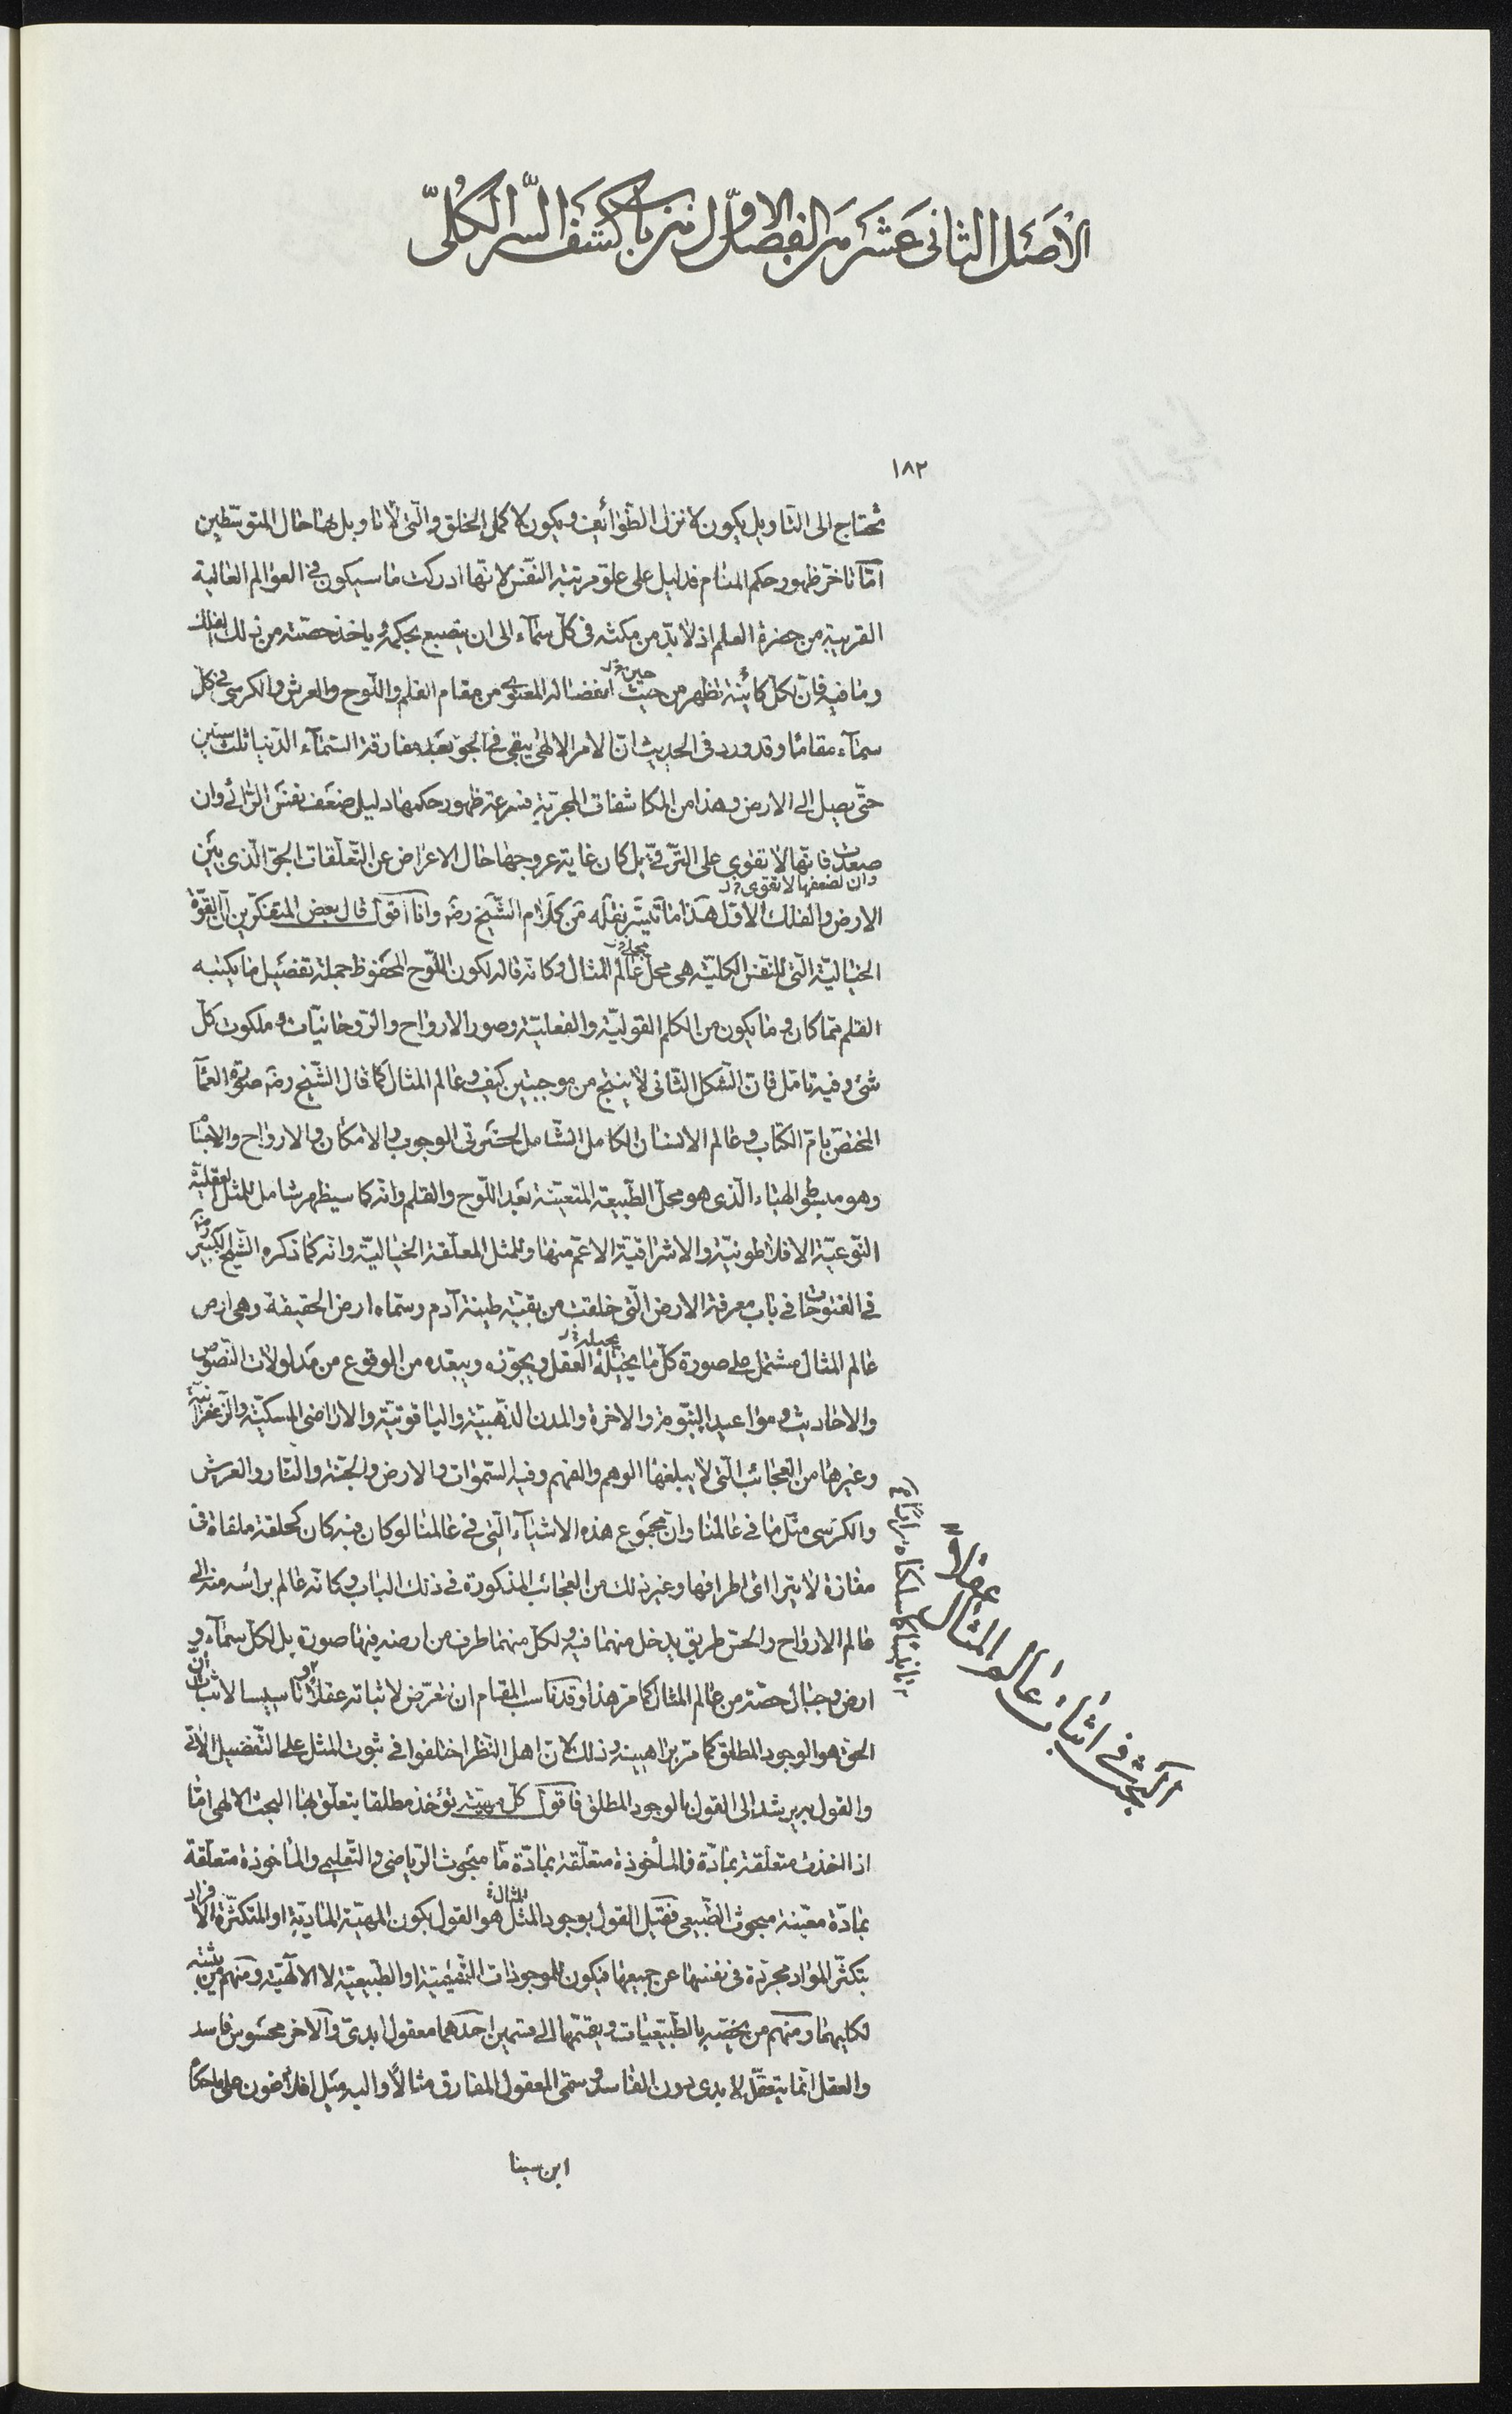 الأصل الثانى عشر من الفصل الاول من باب كشف السر الكلّى
١٨٢
تحتاج الى التاويل يكون لانزل الطّوائف ويكون لاكمل الخلق والّتى لا تاويل لها حال المتوسّطين
امّا تاخّر ظهور حكم المنام فدليل على علوّ مرتبة النّفس لانّها ادركت ما سيكون فى العوالم العالية
القريبة من حضرة العلم اذ لا بدّ من مكثه فى كلّ سمآء الى ان ينصبغ بحكمه وياخذ حصّته من ذلك الفلك
وما فيه فانّ لكلّ كائنة تظهر من حيث حين انفصاله المعنوى من مقام القلم واللّوح والعرش والكرسى فى كلّ
سمآء مقاما وقد ورد فى الحديث انّ الامر الالهى يبقى فى الجوّ بعد مفارقة السّمآء الدّنيا ثلث سنين
حتّى يصل الى الارض وهذا من المكاشفات المجرّبة فسرعة ظهور حكمها دليل ضعف نفس الرّائى وان
صعدت فانّها لا تقوى على الترّقى بل كان غاية عروجها حال الاعراض عن التّعلقات الجوّ الّذى بين
وان لضعفها لا تقوى
الارض والفلك الاوّل هذا ما تيسّر نقله من كلام الشّيخ رضه وانا اقول قال بعض المتفكّرين انّ القوّة
الخياليّة الّتى للنّفس الكلّية هى محلّ عالم المثال وكانّه قاله لكون اللّوح المحفوظ جملة تفصيل ما يكتبه
القلم ممّا كان وما يكون من الكلم القوليّة والفعليّة وصور الارواح والرّوحانيّات وملكوت كلّ
شئ وفيه تامّل فانّ الشّكل الثّانى لا ينتج من موجبتين كيف وعالم المثال كما قال الشّيخ رضه صورة العمآ
المختصّ بامّ الكتاب وعالم الانسان الكامل الشّامل لحضرتى الوجوب والامكان والارواح والاجسام
وهو مبسطى الهباء الّذى هو محلّ الطّبيعة المتعيّنة بعد اللّوح والقلم وانّه كما سيظهر شامل للمثل العقليّة
النّوعيّة الافلاطونيّة والاشراقيّة الاعمّ منها وللمثل المعلّقة الخياليّة وانّه كما ذكره الشّيخ الكبير رضه
فى الفتوحات فى باب معرفة الارض الّتى خلقت من بقيّة طينة آدم وسمّاه ارض الحقيقة وهى ارض
عالم المثال مشتمل على صورة كلّ ما يحيله العقل ويجوّزه ويبعّده من الوقوع من مدلولات النّصوص
والاحاديث ومواعيد النّبوة والاخرة والمدن الذّهبيّة والياقوتيّة والاراضى المسكيّة والزّعفرانيّة
وغيرها من العجائب الّتى لا يبلغها الوهم والفهم وفيه السّموات والارض والجنّة والنّار والعرش
والكرسى مثل ما فى عالمنا وانّ مجموع هذه الاشيآء الّتى فى عالمنا لو كان فيه كان كحلقة ملقاة فى
مفازة لا يترااى اطرافها وغير ذلك من العجائب المذكورة فى ذلك الباب وكانّه عالم برائسه منه الى
عالم الارواح والحسّ طريق يدخل منهما فيه ولكلّ منهما طرف من ارضه فيها صورة بل لكلّ سمآء و
ارض وجبال حصّة من عالم المثال كما مرّ هذا وقد ناسب المقام ان نتعرّض لاثباته عقلا تاسيسا لاثبات انّ
الحقّ هو الوجود المطلق كما مرّ براهينه وذلك لانّ اهل النّظر اختلفوا فى ثبوت المثل على التّفصيل الآتى
والقول به يرشد الى القول بالوجود المطلق فاقول كلّ مهيّة تؤخذ مطلقا يتعلّق بها البحث الالهى امّا
اذا اخذت متعلّقة بمادّة فالمأخوذة متعلّقة بمادّة مّا مبحوث الرّياضى والتّعليمى والمأخوذة متعلّقة
بمادّة معيّنة مبحوث الطّبيعى فقيل القول بوجود المثل هو القول بكون المهيّة المادّيّة او المتكثّرة الافراد
بتكثّر الموادّ مجرّدة فى نفسها عن جميعها فيكون للموجودات التّعليميّة او الطّبيعيّة لا الالهيّة ومنهم من يثبته
لكليهما ومنهم من يخصّه بالطّبيعيات ويقسّمها الى قسمين احدهما معقول ابدىّ والآخر محسوس فاسد
والعقل انّما يتعقّل الابدى دون الفاسد وسمّى المعقول المفارق مثالا واليه ميل افلاطون على ما حكاه
ابن سينا
البحث فى اثبات عالم المثال عقلا